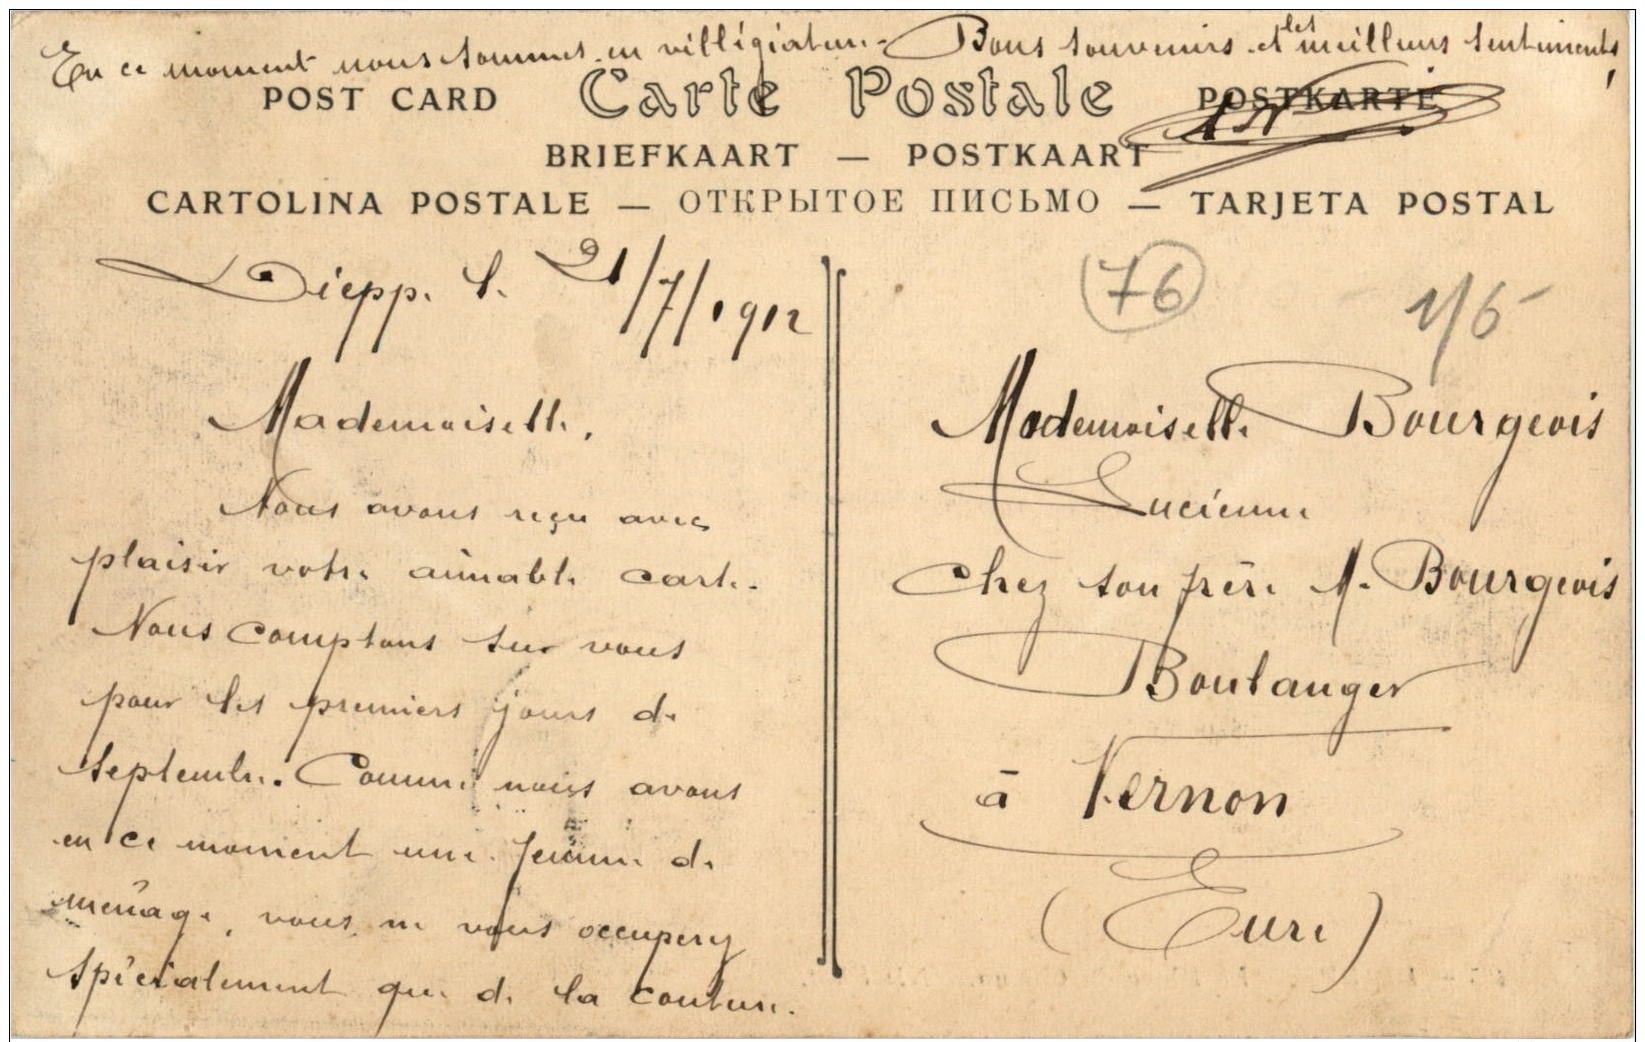 En ce moment nous sommes en villégiature. Bons souvenirs et les meilleurs sentiments
POST CARD Carte Postale POSTKARTE
BRIEFKAART — POSTKAART
CARTOLINA POSTALE — ОТКРЫТОЕ ПИСЬМО — TARJETA POSTAL
Dieppe le 21/7/1912
Mademoiselle,
Nous avons reçu avec
plaisir votre aimable carte.
Nous comptons sur vous
pour les premiers jours de
septembre. Comme nous avons
en ce moment une femme de
ménage, vous ne vous occuperez
spécialement que de la couture.
76
1/6
Mademoiselle Bourgeois
Lucienne
Chez son père M. Bourgeois
Boulanger
à Vernon
(Eure)